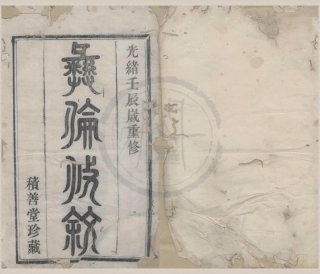 光緒壬辰歲重修
彝倫攸敘
積善堂珍藏